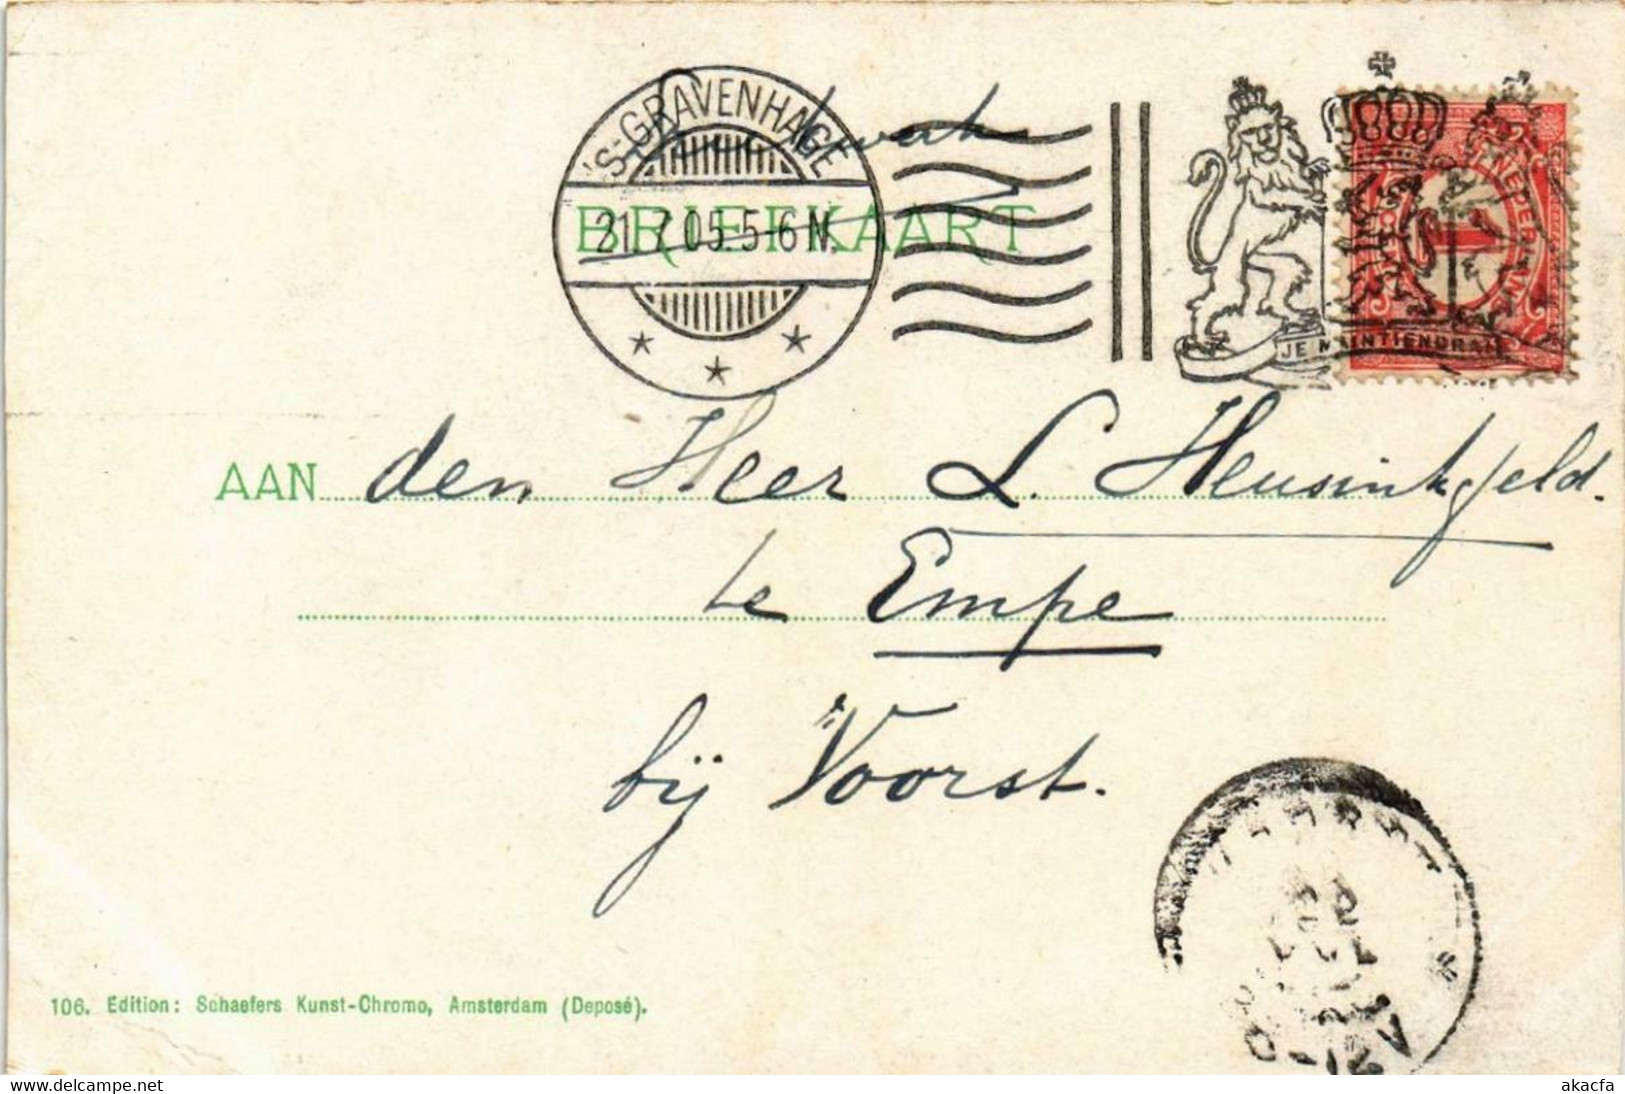 'S-GRAVENHAGE
21.7.05.5-6N.
BRIEFKAART
NEDERLAND
1
JE MAINTIENDRAI
AAN den Heer L. Heusinkfeld.
te Empe
bij Voorst.
106. Edition: Schaefers Kunst-Chromo, Amsterdam (Deposé).
akacfa